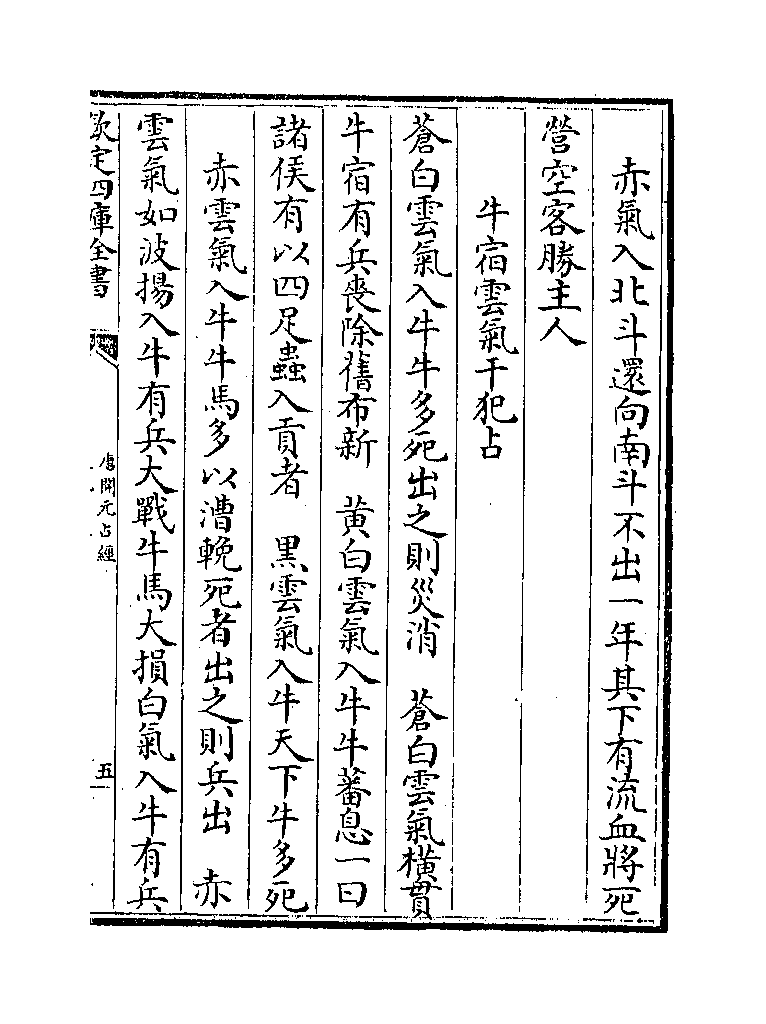 赤氣入北斗還向南斗不出一年其下有流血將死
營空客勝主人
牛宿雲氣干犯占
蒼白雲氣入牛牛多死出之則災消　蒼白雲氣橫貫
牛宿有兵喪除舊布新　黄白雲氣入牛牛蕃息一曰
諸侯有以四足蟲入貢者　黑雲氣入牛天下牛多死
赤雲氣入牛牛馬多以漕輓死者出之則兵出　赤
雲氣如波揚入牛有兵大戰牛馬大損白氣入牛有兵
欽定四庫全書
唐開元占經
五